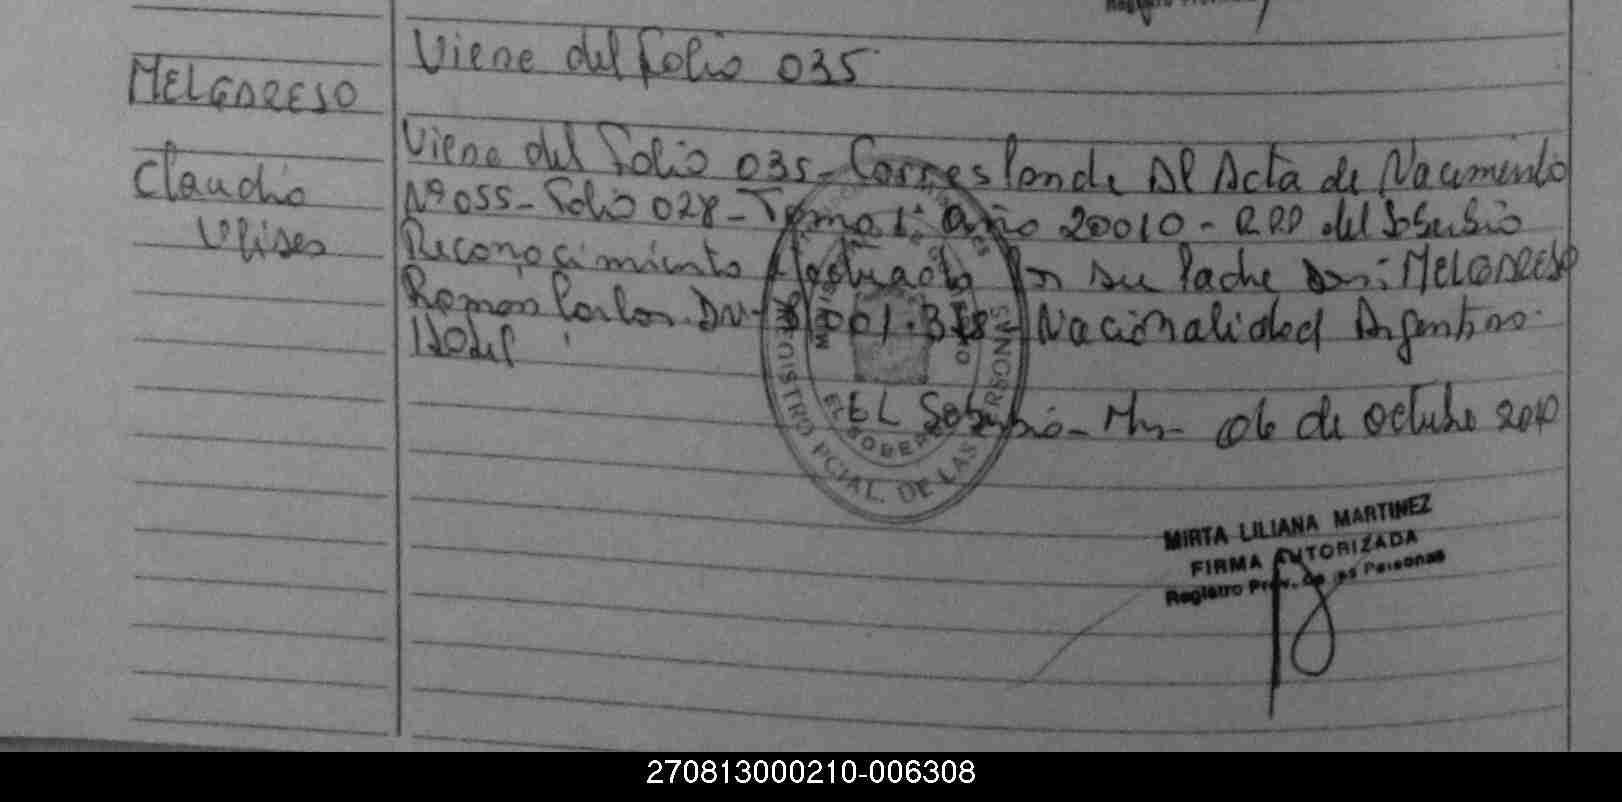 Viene del folio 035
MELGAREJO
Claudio
Ulises
Viene del Folio 035 - Corresponde Al Acta de Nacimiento
Nº 055 - Folio 028 - Tomo 1º Año 20010 - R.P.P del Soberbio
Reconocimiento efectuado Por su Padre Don: MELGAREJO
Ramon Carlos. DNI- 001.318 - Nacionalidad Argentino.
EL Soberbio - Mns - 06 de Octubre 2010
REGISTRO PCIAL. DE LAS PERSONAS
EL SOBERBIO
MIRTA LILIANA MARTINEZ
FIRMA AUTORIZADA
Registro Prov. de las Personas
270813000210-006308